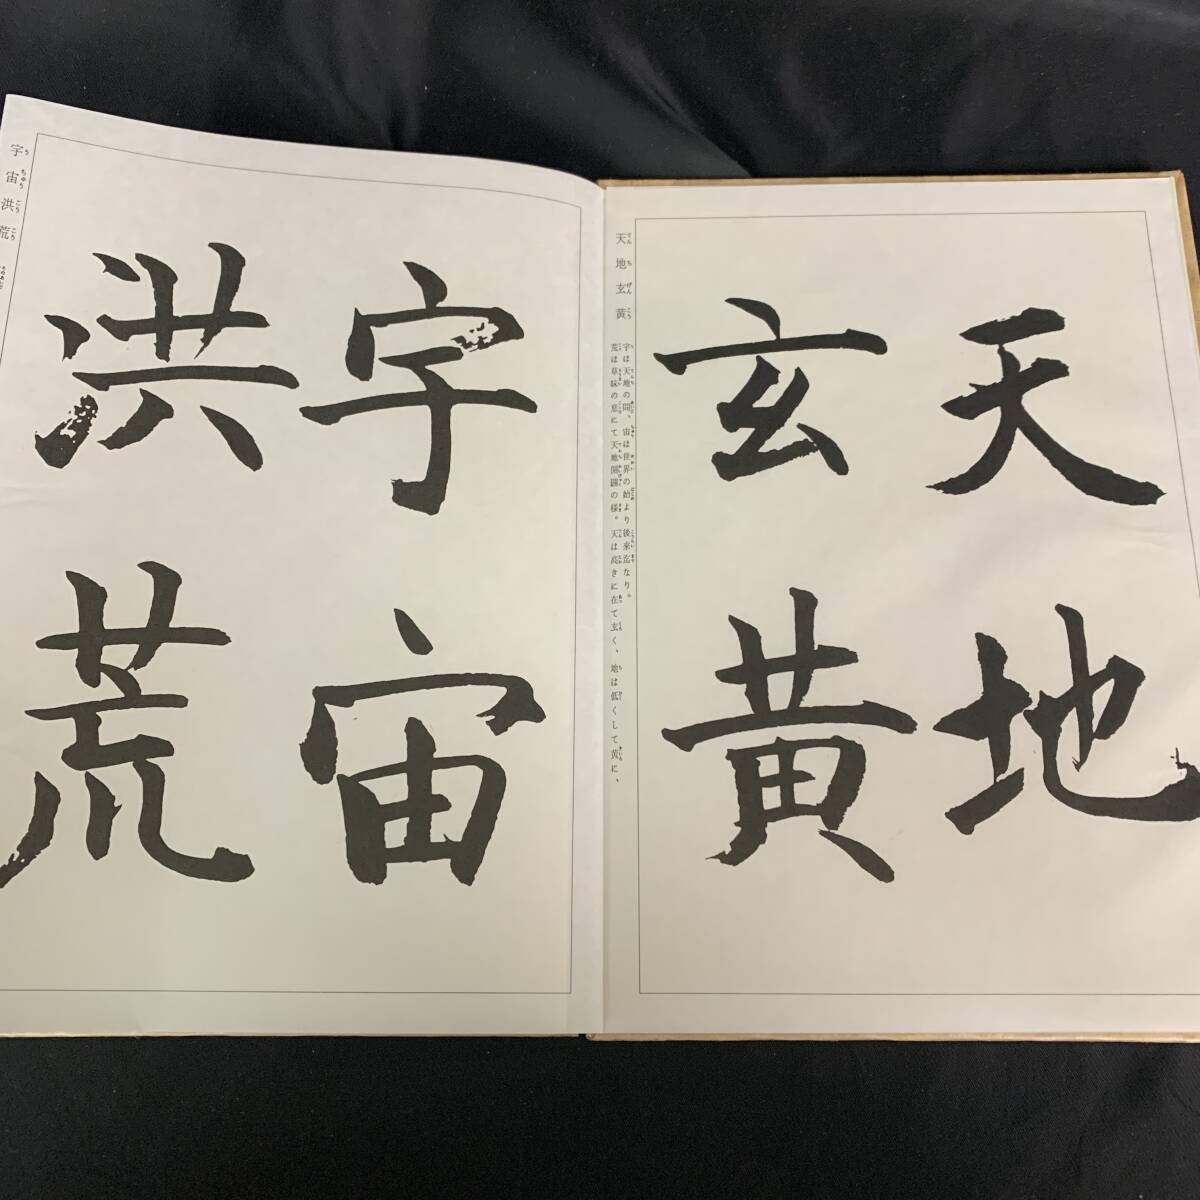 天地
玄黄
天地玄黄
てんちげんこう
天は高きに在て玄く、地は低くして黄に、
宇は天地の間、宙は世界の始より後来迄なり。
荒は草昧の意にて天地開闢の様。
宇宙
洪荒
宇宙洪荒
うちゅうこうこう